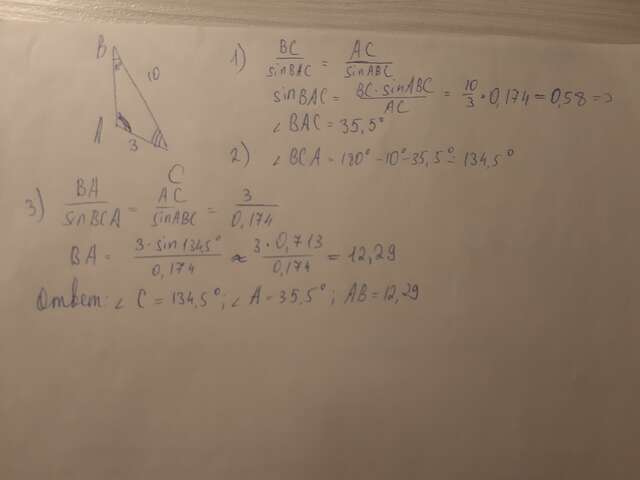 B
10
A
3
C
1) BC/sinBAC = AC/sinABC
sinBAC = BC·sinABC/AC = 10/3 · 0,174 = 0,58 =>
∠BAC = 35,5°
2) ∠BCA = 180° - 10° - 35,5° = 134,5°
3) BA/sinBCA = AC/sinABC = 3/0,174
BA = 3·sin134,5°/0,174 ≈ 3·0,713/0,174 = 12,29
Ответ: ∠C = 134,5°; ∠A = 35,5°; AB = 12,29